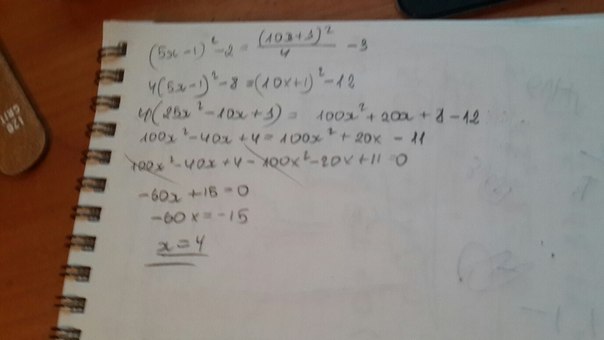 (5x-1)²-2 = (10x+1)²/4 -3
4(5x-1)²-8=(10x+1)²-12
4(25x²-10x+1)= 100x²+20x+1-12
100x²-40x+4=100x²+20x-11
100x²-40x+4-100x²-20x+11=0
-60x+15=0
-60x=-15
x=4
120
GRIT